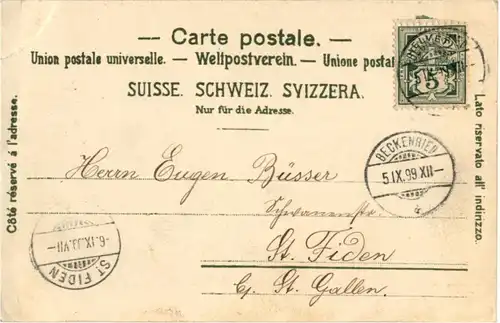 Carte postale.
Union postale universelle. — Weltpostverein. — Unione postal
SUISSE. SCHWEIZ. SVIZZERA.
Nur für die Adresse.
Côté réservé à l'adresse.
Lato riservato all' indirizzo.
HELVETIA
5
BECKENRIED
5 IX.99 XII—
Herrn Eugen Büsser
Schwanenstr.
St. Fiden
St. Gallen.
—6.IX.99.VII—
ST. FIDEN